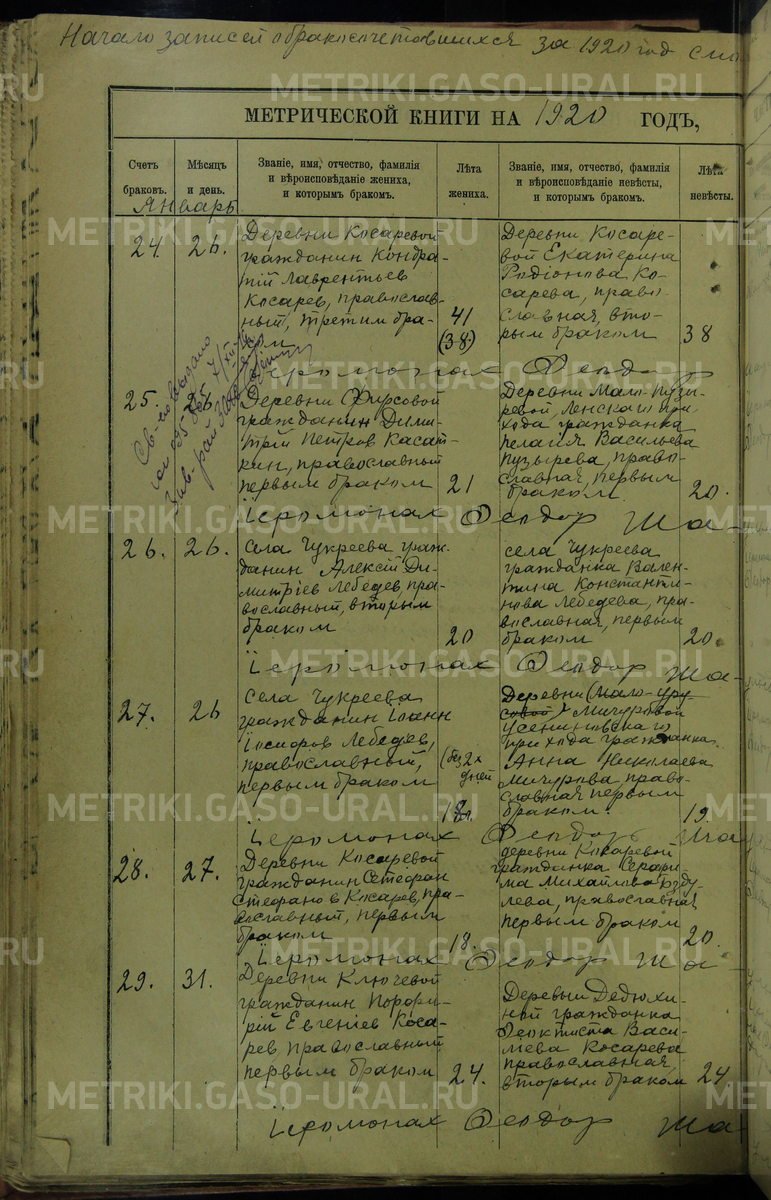 Начало записей обракосочетавшихся за 1920 год
МЕТРИЧЕСКОЙ КНИГИ НА 1920 ГОДЪ,
Счетъ браковъ.
Мѣсяцъ и день.
Званіе, имя, отчество, фамилія
и вѣроисповѣданіе жениха,
и которымъ бракомъ.
Лѣта
жениха.
Званіе, имя, отчество, фамилія
и вѣроисповѣданіе невѣсты,
и которымъ бракомъ.
Лѣта
невѣсты.
Январь
24. 26.
Деревни Косаревой
гражданин Кондра-
тій Лаврентьев
Косарев, православ-
ный, третим бра-
ком
41
(38)
Деревни Косаре-
вой Екатерина
Родіонова Ко-
сарева, право-
славная, вто-
рым браком
38
Іеромонах Феодор
25. 26.
Деревни Фирсовой
гражданин Дими-
трій Петров Касат-
кин, православный
первым браком
21
Деревни Мало-Пузы-
ревой, Ленскаго при-
хода гражданка
Пелагія Васильева
Пузырева, право-
славная, первым
браком
20.
Іеромонах Феодор Ша-
26. 26.
Села Чукреева граж-
данин Алексій Ди-
митріев Лебедев, пра-
вославный, вторым
браком
20
села Чукреева
гражданка Вален-
тина Константи-
нова Лебедева, пра-
вославная, первым
браком
20.
Іеромонах Феодор Ша-
27. 26
Села Чукреева
гражданин Іоанн
Ісидоров Лебедев,
православный,
первым браком
(без 2х
дней
18л.
Деревни (Мало-Уру-
совой) Мичуровой
Усениновскаго
прихода гражданка
Анна Николаева
Мичурова право-
славная первым
браком.
19.
Іеромонах Феодор Ша
28. 27.
Деревни Косаревой
гражданин Стефан
Стефанов Косарев, пра-
вославный, первым
браком
18.
деревни Косаревой
гражданка Серафи-
ма Михайлова Буду-
лева, православная
первым браком
20.
Іеромонах Феодор Ша-
29. 31.
Деревни Ключевой
гражданин Порфи-
рій Евгеніев Коса-
рев православный
первым браком
24.
Деревни Дедюхи-
ной гражданка
Феоктиста Васи-
льева Косарева
православная,
вторым браком
24
Іеромонах Феодор Ша-
METRIKI.GASO-URAL.RU